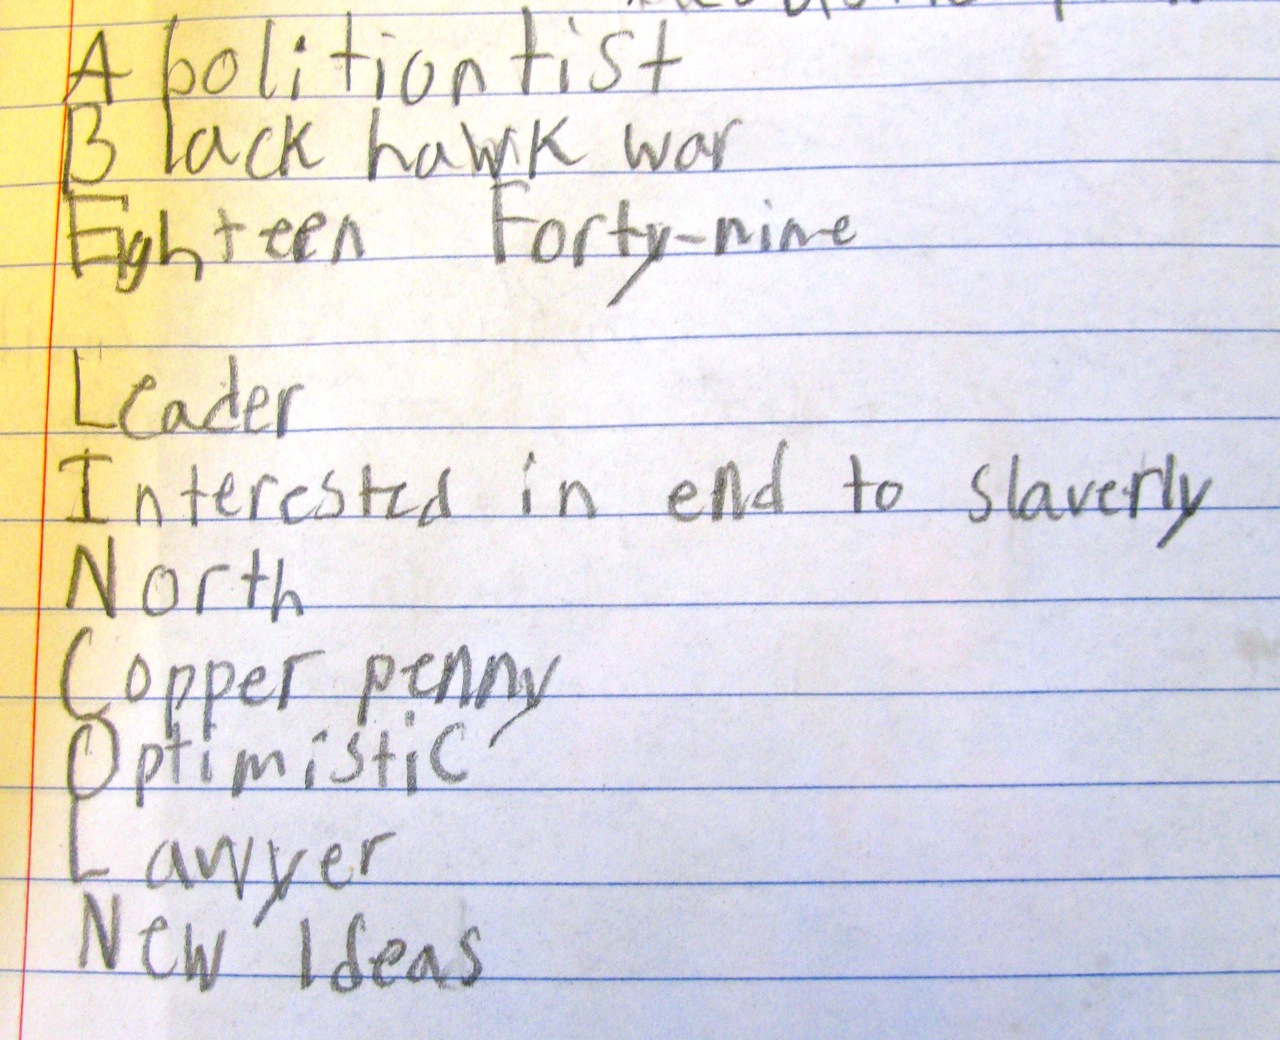 Abolitiontist
Black hawk war
Eighteen Forty-nine
Leader
Interested in end to slaverly
North
Copper penny
Optimistic
Lawyer
New Ideas